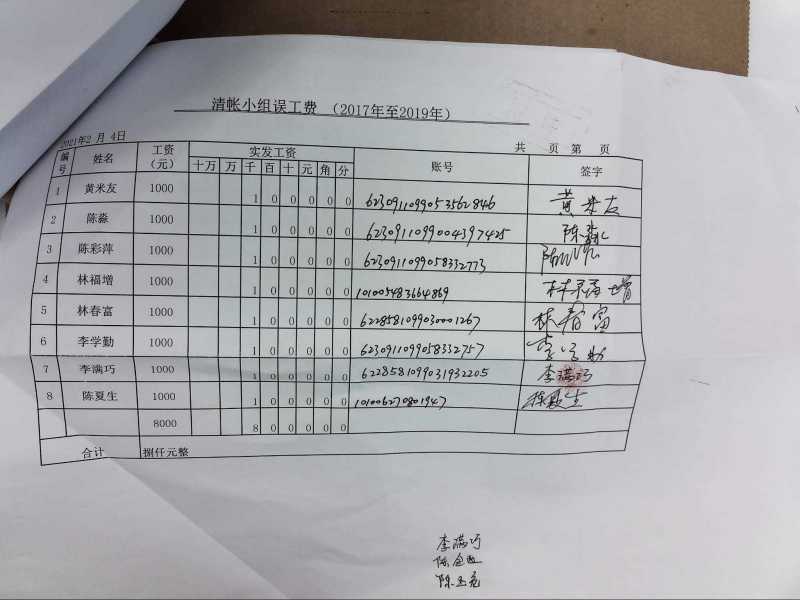 清帐小组误工费 （2017年至2019年）
2021年2 月 4日 共 页 第 页
编号 姓名 工资（元） 实发工资 账号 签字
十万 万 千 百 十 元 角 分
1 黄米友 1000 1 0 0 0 0 0 6230911099053562846 黄米友
2 陈淼 1000 1 0 0 0 0 0 6230911099004397425 陈淼
3 陈彩萍 1000 1 0 0 0 0 0 6230911099058332773
4 林福增 1000 1 0 0 0 0 0 101005483664869 林福增
5 林春富 1000 1 0 0 0 0 0 6228581099030001267 林春富
6 李学勤 1000 1 0 0 0 0 0 6230911099058332757 李学勤
7 李满巧 1000 1 0 0 0 0 0 6228581099031932205 李满巧
8 陈夏生 1000 1 0 0 0 0 0 101006270801947 陈夏生
8000 8 0 0 0 0 0
合计 捌仟元整
李满巧